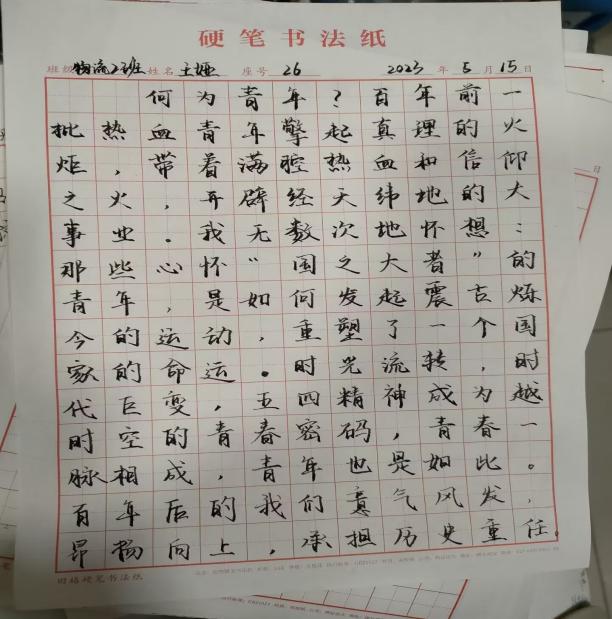 硬笔书法纸
班级 物流22班 姓名 王娅 座号 26 2023年5月15日
何为青年？百年前一
批热血青年擎起真理的火
炬，带着满腔热血和信仰
之火，开辟经天纬地的大
事业。我无数次地怀想：
那些心怀“国之大者”的
青年，是如何发起震古烁
今的运动，重塑了一个国
家的命运。时光流转，时
代巨变，五四精神成为越
时空的青春密码，青春一
脉相成，青年也是如此。
百年后的我们意气风发，
昂杨向上，承担历史重任。
田格硬笔书法纸